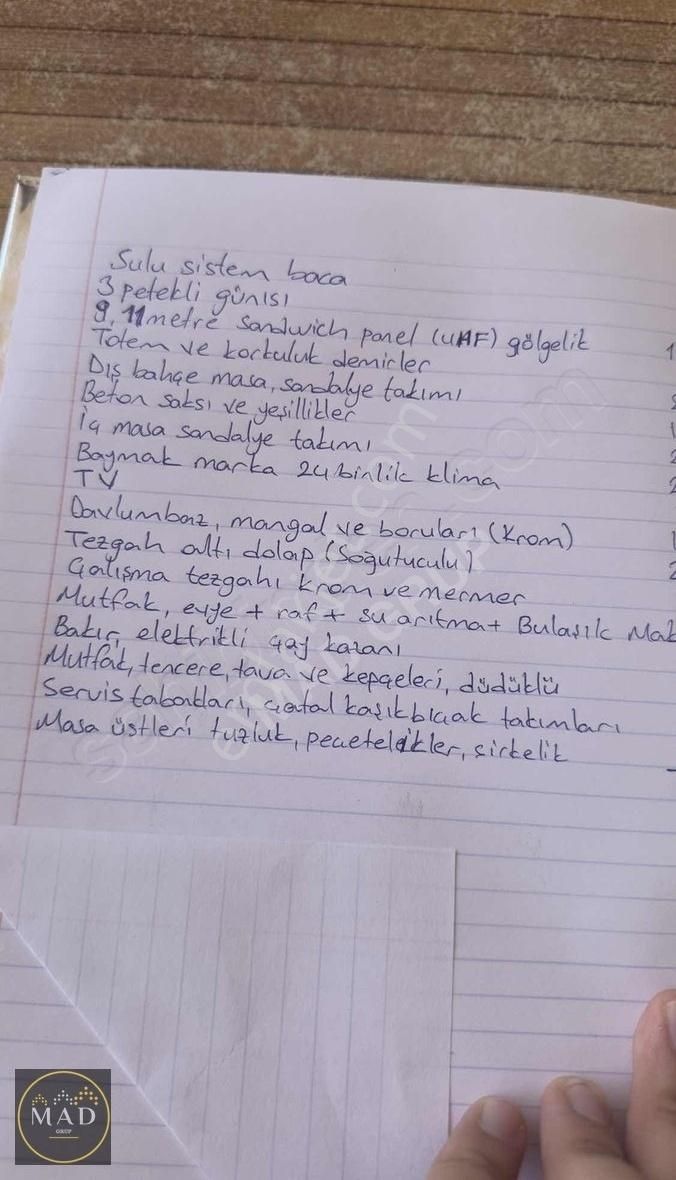 Sulu sistem baca
3 petekli günısı
9,11 metre sandwich panel (UAF) gölgelik
Totem ve korkuluk demirler
Dış bahçe masa, sandalye takımı
Beton saksı ve yeşillikler
İç masa sandalye takımı
Baymak marka 24 binlik klima
TV
Davlumbaz, mangal ve boruları (Krom)
Tezgah altı dolap (Soğutuculu)
Çalışma tezgahı krom ve mermer
Mutfak, evye + raf + su arıtma + Bulaşık Mak
Bakır, elektrikli çay kazanı
Mutfak, tencere, tava ve kepçeleri, düdüklü
Servis tabakları, çatal kaşık bıçak takımları
Masa üstleri tuzluk, peçetelikler, sirkelik
MAD
GRUP